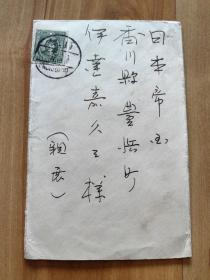 日本帝国
香川縣豊浜町
伊達嘉久了様
(親展)